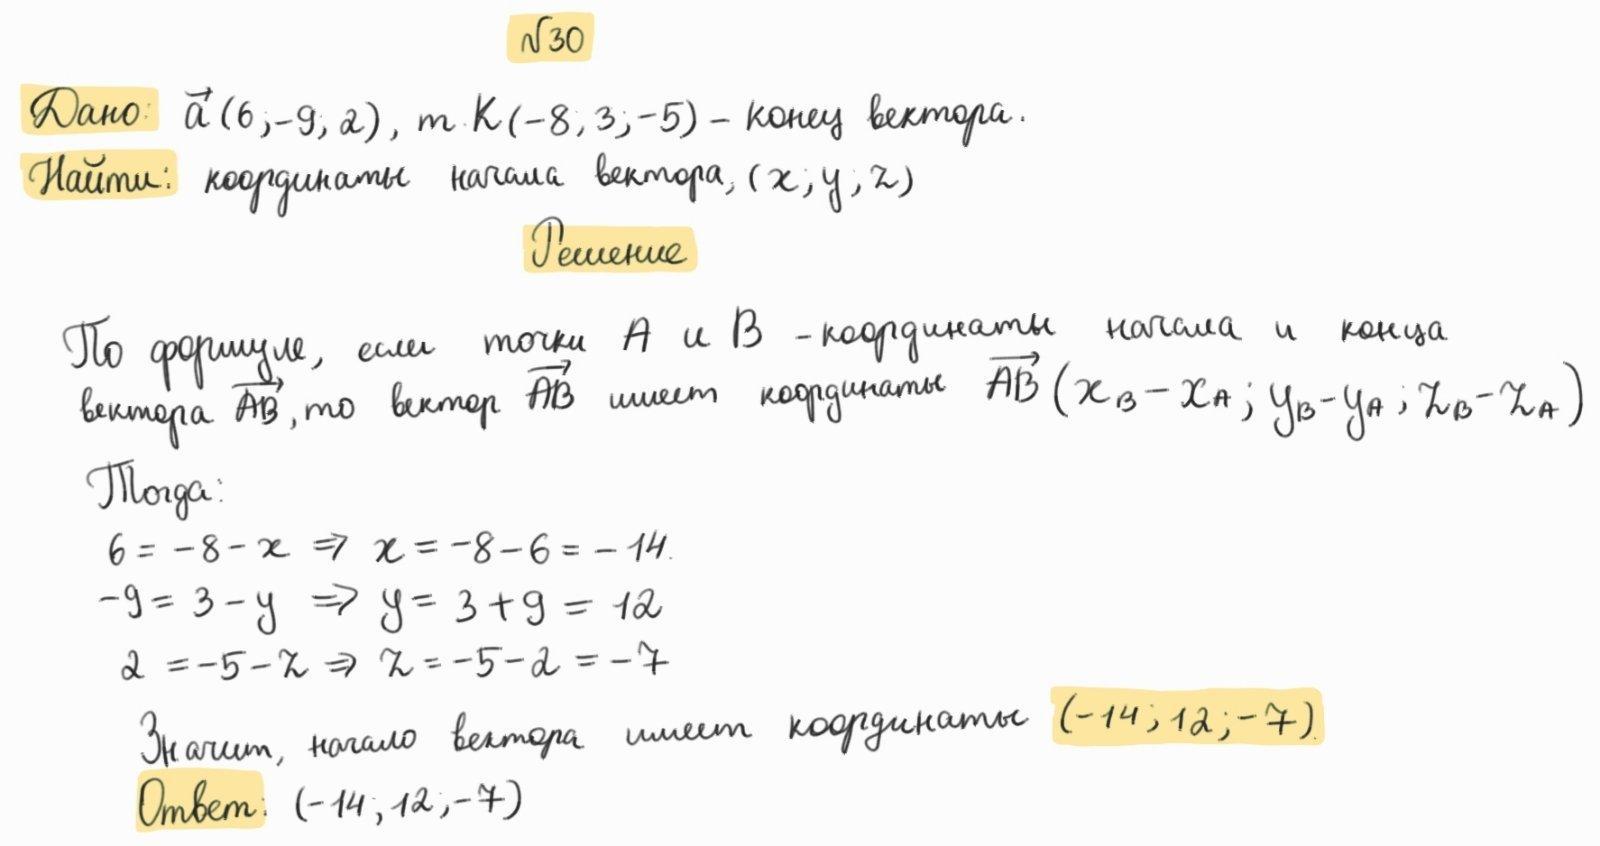 №30
Дано: a⃗ (6;-9;2), т.К(-8;3;-5) – конец вектора.
Найти: координаты начала вектора, (x;y;z)
Решение
По формуле, если точки A и B – координаты начала и конца
вектора A͞B⃗, то вектор A͞B⃗ имеет координаты A͞B⃗ (x_B – x_A; y_B – y_A; z_B – z_A)
Тогда:
6 = -8 - x ⇒ x = -8 - 6 = -14.
-9 = 3 - y ⇒ y = 3 + 9 = 12
2 = -5 - z ⇒ z = -5 - 2 = -7
Значит, начало вектора имеет координаты (-14; 12; -7).
Ответ: (-14; 12; -7)